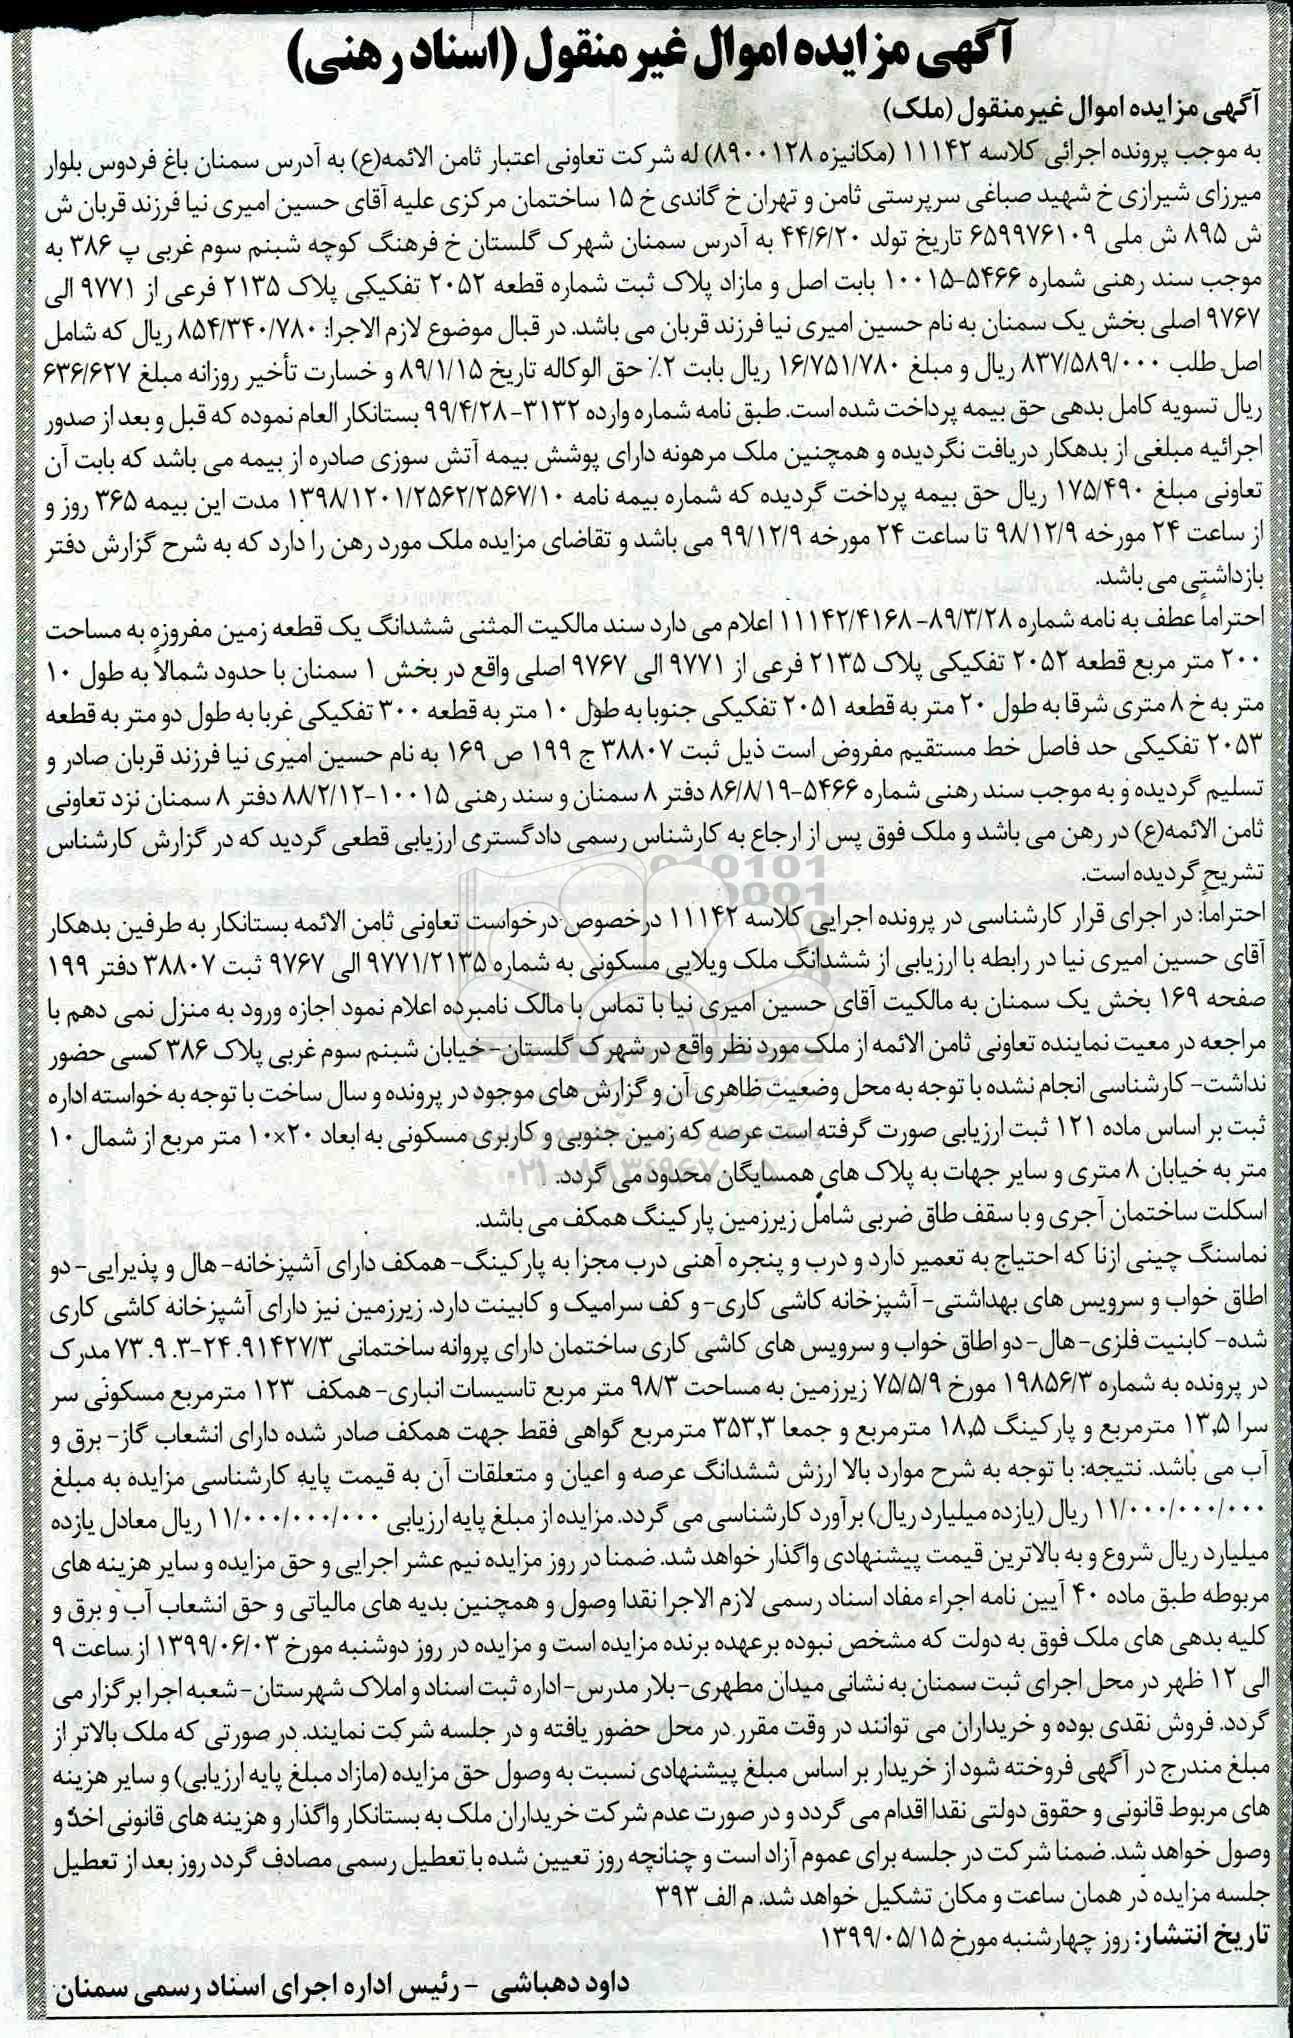 آگهی مزایده اموال غیرمنقول (اسناد رهنی)
آگهی مزایده اموال غیرمنقول (ملک)
به موجب پرونده اجرائی کلاسه ۱۱۱۴۲ (مکانیزه ۸۹۰۰۱۲۸) له شرکت تعاونی اعتبار ثامن الائمه(ع) به آدرس سمنان باغ فردوس بلوار
میرزای شیرازی خ شهید صباغی سرپرستی ثامن و تهران خ گاندی خ ۱۵ ساختمان مرکزی علیه آقای حسین امیری نیا فرزند قربان ش
ش ۸۹۵ ش ملی ۶۵۹۹۷۶۱۰۹ تاریخ تولد ۴۴/۶/۲۰ به آدرس سمنان شهرک گلستان خ فرهنگ کوچه شبنم سوم غربی پ ۳۸۶ به
موجب سند رهنی شماره ۵۴۶۶-۱۰۰۱۵ بابت اصل و مازاد پلاک ثبت شماره قطعه ۲۰۵۲ تفکیکی پلاک ۲۱۳۵ فرعی از ۹۷۷۱ الی
۹۷۶۷ اصلی بخش یک سمنان به نام حسین امیری نیا فرزند قربان می باشد. در قبال موضوع لازم الاجرا: ۸۵۴/۳۴۰/۷۸۰ ریال که شامل
اصل طلب ۸۳۷/۵۸۹/۰۰۰ ریال و مبلغ ۱۶/۷۵۱/۷۸۰ ریال بابت ۲٪ حق الوکاله تاریخ ۸۹/۱/۱۵ و خسارت تأخیر روزانه مبلغ ۶۳۶/۶۲۷
ریال تسویه کامل بدهی حق بیمه پرداخت شده است. طبق نامه شماره وارده ۳۱۳۲-۹۹/۴/۲۸ بستانکار العام نموده که قبل و بعد از صدور
اجرائیه مبلغی از بدهکار دریافت نگردیده و همچنین ملک مرهونه دارای پوشش بیمه آتش سوزی صادره از بیمه می باشد که بابت آن
تعاونی مبلغ ۱۷۵/۴۹۰ ریال حق بیمه پرداخت گردیده که شماره بیمه نامه ۱۳۹۸/۱۲۰۱/۲۵۶۲/۲۵۶۷/۱۰ مدت این بیمه ۳۶۵ روز و
از ساعت ۲۴ مورخه ۹۸/۱۲/۹ تا ساعت ۲۴ مورخه ۹۹/۱۲/۹ می باشد و تقاضای مزایده ملک مورد رهن را دارد که به شرح گزارش دفتر
بازداشتی می باشد.
احتراماً عطف به نامه شماره ۸۹/۳/۲۸-۱۱۱۴۲/۴۱۶۸ اعلام می دارد سند مالکیت المثنی ششدانگ یک قطعه زمین مفروزه به مساحت
۲۰۰ متر مربع قطعه ۲۰۵۲ تفکیکی پلاک ۲۱۳۵ فرعی از ۹۷۷۱ الی ۹۷۶۷ اصلی واقع در بخش ۱ سمنان با حدود شمالاً به طول ۱۰
متر به خ ۸ متری شرقا به طول ۲۰ متر به قطعه ۲۰۵۱ تفکیکی جنوبا به طول ۱۰ متر به قطعه ۳۰۰ تفکیکی غربا به طول دو متر به قطعه
۲۰۵۳ تفکیکی حد فاصل خط مستقیم مفروض است ذیل ثبت ۳۸۸۰۷ ج ۱۹۹ ص ۱۶۹ به نام حسین امیری نیا فرزند قربان صادر و
تسلیم گردیده و به موجب سند رهنی شماره ۵۴۶۶-۸۶/۸/۱۹ دفتر ۸ سمنان و سند رهنی ۱۰۰۱۵-۸۸/۲/۱۲ دفتر ۸ سمنان نزد تعاونی
ثامن الائمه(ع) در رهن می باشد و ملک فوق پس از ارجاع به کارشناس رسمی دادگستری ارزیابی قطعی گردید که در گزارش کارشناس
تشریح گردیده است.
احتراماً: در اجرای قرار کارشناسی در پرونده اجرایی کلاسه ۱۱۱۴۲ درخصوص درخواست تعاونی ثامن الائمه بستانکار به طرفین بدهکار
آقای حسین امیری نیا در رابطه با ارزیابی از ششدانگ ملک ویلایی مسکونی به شماره ۹۷۷۱/۲۱۳۵ الی ۹۷۶۷ ثبت ۳۸۸۰۷ دفتر ۱۹۹
صفحه ۱۶۹ بخش یک سمنان به مالکیت آقای حسین امیری نیا با تماس با مالک نامبرده اعلام نمود اجازه ورود به منزل نمی دهم با
مراجعه در معیت نماینده تعاونی ثامن الائمه از ملک مورد نظر واقع در شهرک گلستان-خیابان شبنم سوم غربی پلاک ۳۸۶ کسی حضور
نداشت-کارشناسی انجام نشده با توجه به محل وضعیت ظاهری آن و گزارش های موجود در پرونده و سال ساخت با توجه به خواسته اداره
ثبت بر اساس ماده ۱۲۱ ثبت ارزیابی صورت گرفته است عرصه که زمین جنوبی و کاربری مسکونی به ابعاد ۲۰×۱۰ متر مربع از شمال ۱۰
متر به خیابان ۸ متری و سایر جهات به پلاک های همسایگان محدود می گردد.
اسکلت ساختمان آجری و با سقف طاق ضربی شامل زیرزمین پارکینگ همکف می باشد.
نماسنگ چینی ازنا که احتیاج به تعمیر دارد و درب و پنجره آهنی درب مجزا به پارکینگ-همکف دارای آشپزخانه-هال و پذیرایی-دو
اطاق خواب و سرویس های بهداشتی-آشپزخانه کاشی کاری-و کف سرامیک و کابینت دارد. زیرزمین نیز دارای آشپزخانه کاشی کاری
شده-کابنیت فلزی-هال-دو اطاق خواب و سرویس های کاشی کاری ساختمان دارای پروانه ساختمانی ۹۱۴۲۷/۳.۲۴-۷۳.۹.۳ مدرک
در پرونده به شماره ۱۹۸۵۶/۳ مورخ ۷۵/۵/۹ زیرزمین به مساحت ۹۸/۳ متر مربع تاسیسات انباری-همکف ۱۲۳ مترمربع مسکونی سر
سرا ۱۳٫۵ مترمربع و پارکینگ ۱۸٫۵ مترمربع و جمعا ۳۵۳٫۳ مترمربع گواهی فقط جهت همکف صادر شده دارای انشعاب گاز-برق و
آب می باشد. نتیجه: با توجه به شرح موارد بالا ارزش ششدانگ عرصه و اعیان و متعلقات آن به قیمت پایه کارشناسی مزایده به مبلغ
۱۱/۰۰۰/۰۰۰/۰۰۰ ریال (یازده میلیارد ریال) برآورد کارشناسی می گردد. مزایده از مبلغ پایه ارزیابی ۱۱/۰۰۰/۰۰۰/۰۰۰ ریال معادل یازده
میلیارد ریال شروع و به بالاترین قیمت پیشنهادی واگذار خواهد شد. ضمنا در روز مزایده نیم عشر اجرایی و حق مزایده و سایر هزینه های
مربوطه طبق ماده ۴۰ آیین نامه اجراء مفاد اسناد رسمی لازم الاجرا نقدا وصول و همچنین بدیه های مالیاتی و حق انشعاب آب و برق و
کلیه بدهی های ملک فوق به دولت که مشخص نبوده برعهده برنده مزایده است و مزایده در روز دوشنبه مورخ ۱۳۹۹/۰۶/۰۳ از ساعت ۹
الی ۱۲ ظهر در محل اجرای ثبت سمنان به نشانی میدان مطهری-بلار مدرس-اداره ثبت اسناد و املاک شهرستان-شعبه اجرا برگزار می
گردد. فروش نقدی بوده و خریداران می توانند در وقت مقرر در محل حضور یافته و در جلسه شرکت نمایند. در صورتی که ملک بالاتر از
مبلغ مندرج در آگهی فروخته شود از خریدار بر اساس مبلغ پیشنهادی نسبت به وصول حق مزایده (مازاد مبلغ پایه ارزیابی) و سایر هزینه
های مربوط قانونی و حقوق دولتی نقدا اقدام می گردد و در صورت عدم شرکت خریداران ملک به بستانکار واگذار و هزینه های قانونی اخذ و
وصول خواهد شد. ضمنا شرکت در جلسه برای عموم آزاد است و چنانچه روز تعیین شده با تعطیل رسمی مصادف گردد روز بعد از تعطیل
جلسه مزایده در همان ساعت و مکان تشکیل خواهد شد. م الف ۳۹۳
تاریخ انتشار: روز چهارشنبه مورخ ۱۳۹۹/۰۵/۱۵
داود دهباشی - رئیس اداره اجرای اسناد رسمی سمنان